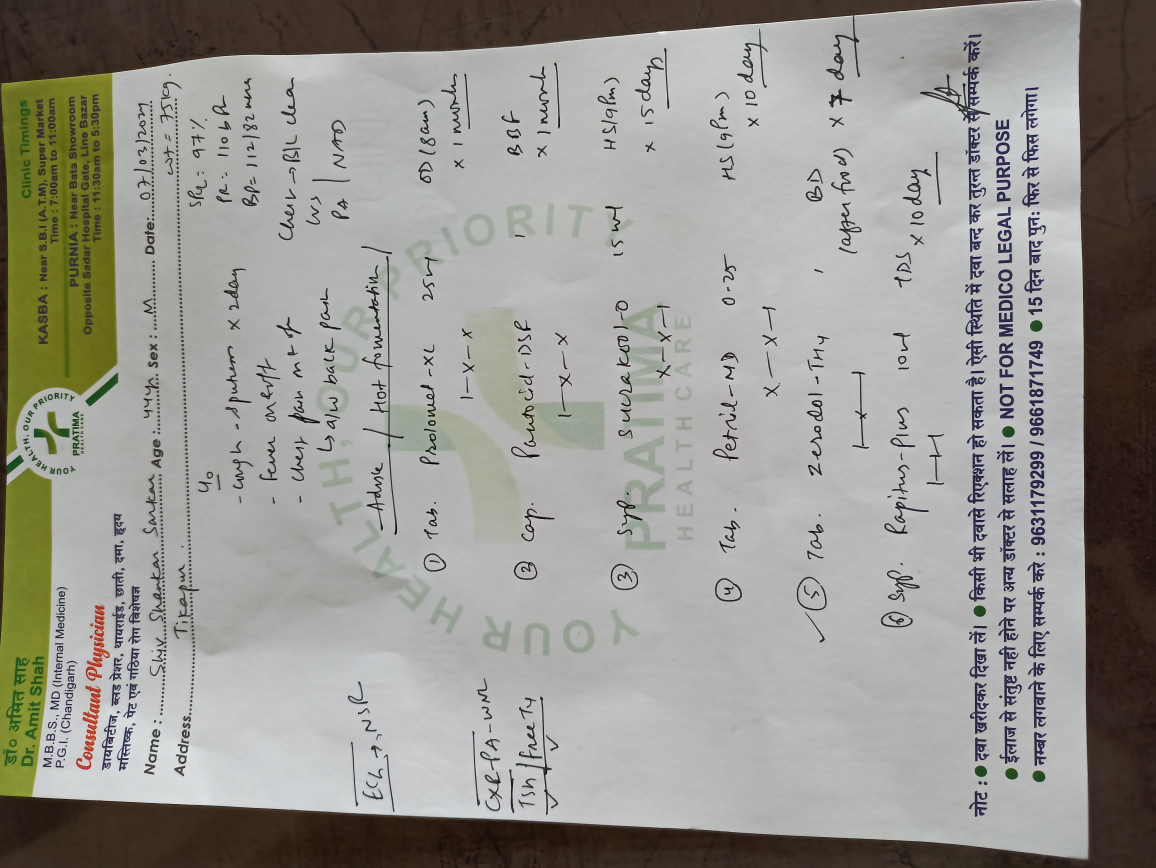 डॉ० अमित साह
Dr. Amit Shah
M.B.B.S., MD (Internal Medicine)
P.G.I. (Chandigarh)
Consultant Physician
डायबिटीज, ब्लड प्रेशर, थायराईड, छाती, दमा, हृदय
मस्तिष्क, पेट एवं गठिया रोग विशेषज्ञ
YOUR HEALTH, OUR PRIORITY
PRATIMA
Clinic Timings
KASBA : Near S.B.I (A.T.M), Super Market
Time : 7:00am to 11:00am
PURNIA : Near Bata Showroom
Opposite Sadar Hospital Gate, Line Bazar
Time : 11:30am to 5:30pm
Name : Shiv Shankar Sarkar Age : 44yr Sex : M Date: 07/03/2024
Address Tikapur. wt = 75kg.
c/o
- cough - sputum x 2day
- Fever on & off
- Chest pain
↳ a/w back pain
SPO2 = 97%
PR = 110 bpm
BP = 112/82 mm
Chest → B/L clear
CVS
PA | NAD
Advise / Hot fomentation /
ECG → NSR
CXR-PA-WNL
TSH / Free T4
① Tab. Prolomet-XL 25 OD (8am)
1-x-x x 1 month
② Cap. Pantocid-DSR 1 BBF
1-x-x x 1 month
③ Syp. Sucrakool-O 15ml HS (9pm)
x-x-1 x 15 days
④ Tab. Petril-MD 0.25 HS (9pm)
x-x-1 x 10 day
⑤ Tab. Zerodol-TH4 1 BD
1-x-1 (after food) x 7 day
⑥ Syp. Rapitus-Plus 10ml TDS
1-1-1 x 10 day
YOUR HEALTH, OUR PRIORITY
PRATIMA
HEALTH CARE
नोट : ● दवा खरीदकर दिखा लें। ● किसी भी दवासे रिएक्शन हो सकता है। ऐसी स्थिति में दवा बन्द कर तुरन्त डॉक्टर से सम्पर्क करें।
● ईलाज से संतुष्ट नही होने पर अन्य डॉक्टर से सलाह लें। ● NOT FOR MEDICO LEGAL PURPOSE
● नम्बर लगवाने के लिए सम्पर्क करे : 9631179299 / 9661871749 ● 15 दिन बाद पुनः फिर से फिस लगेगा।